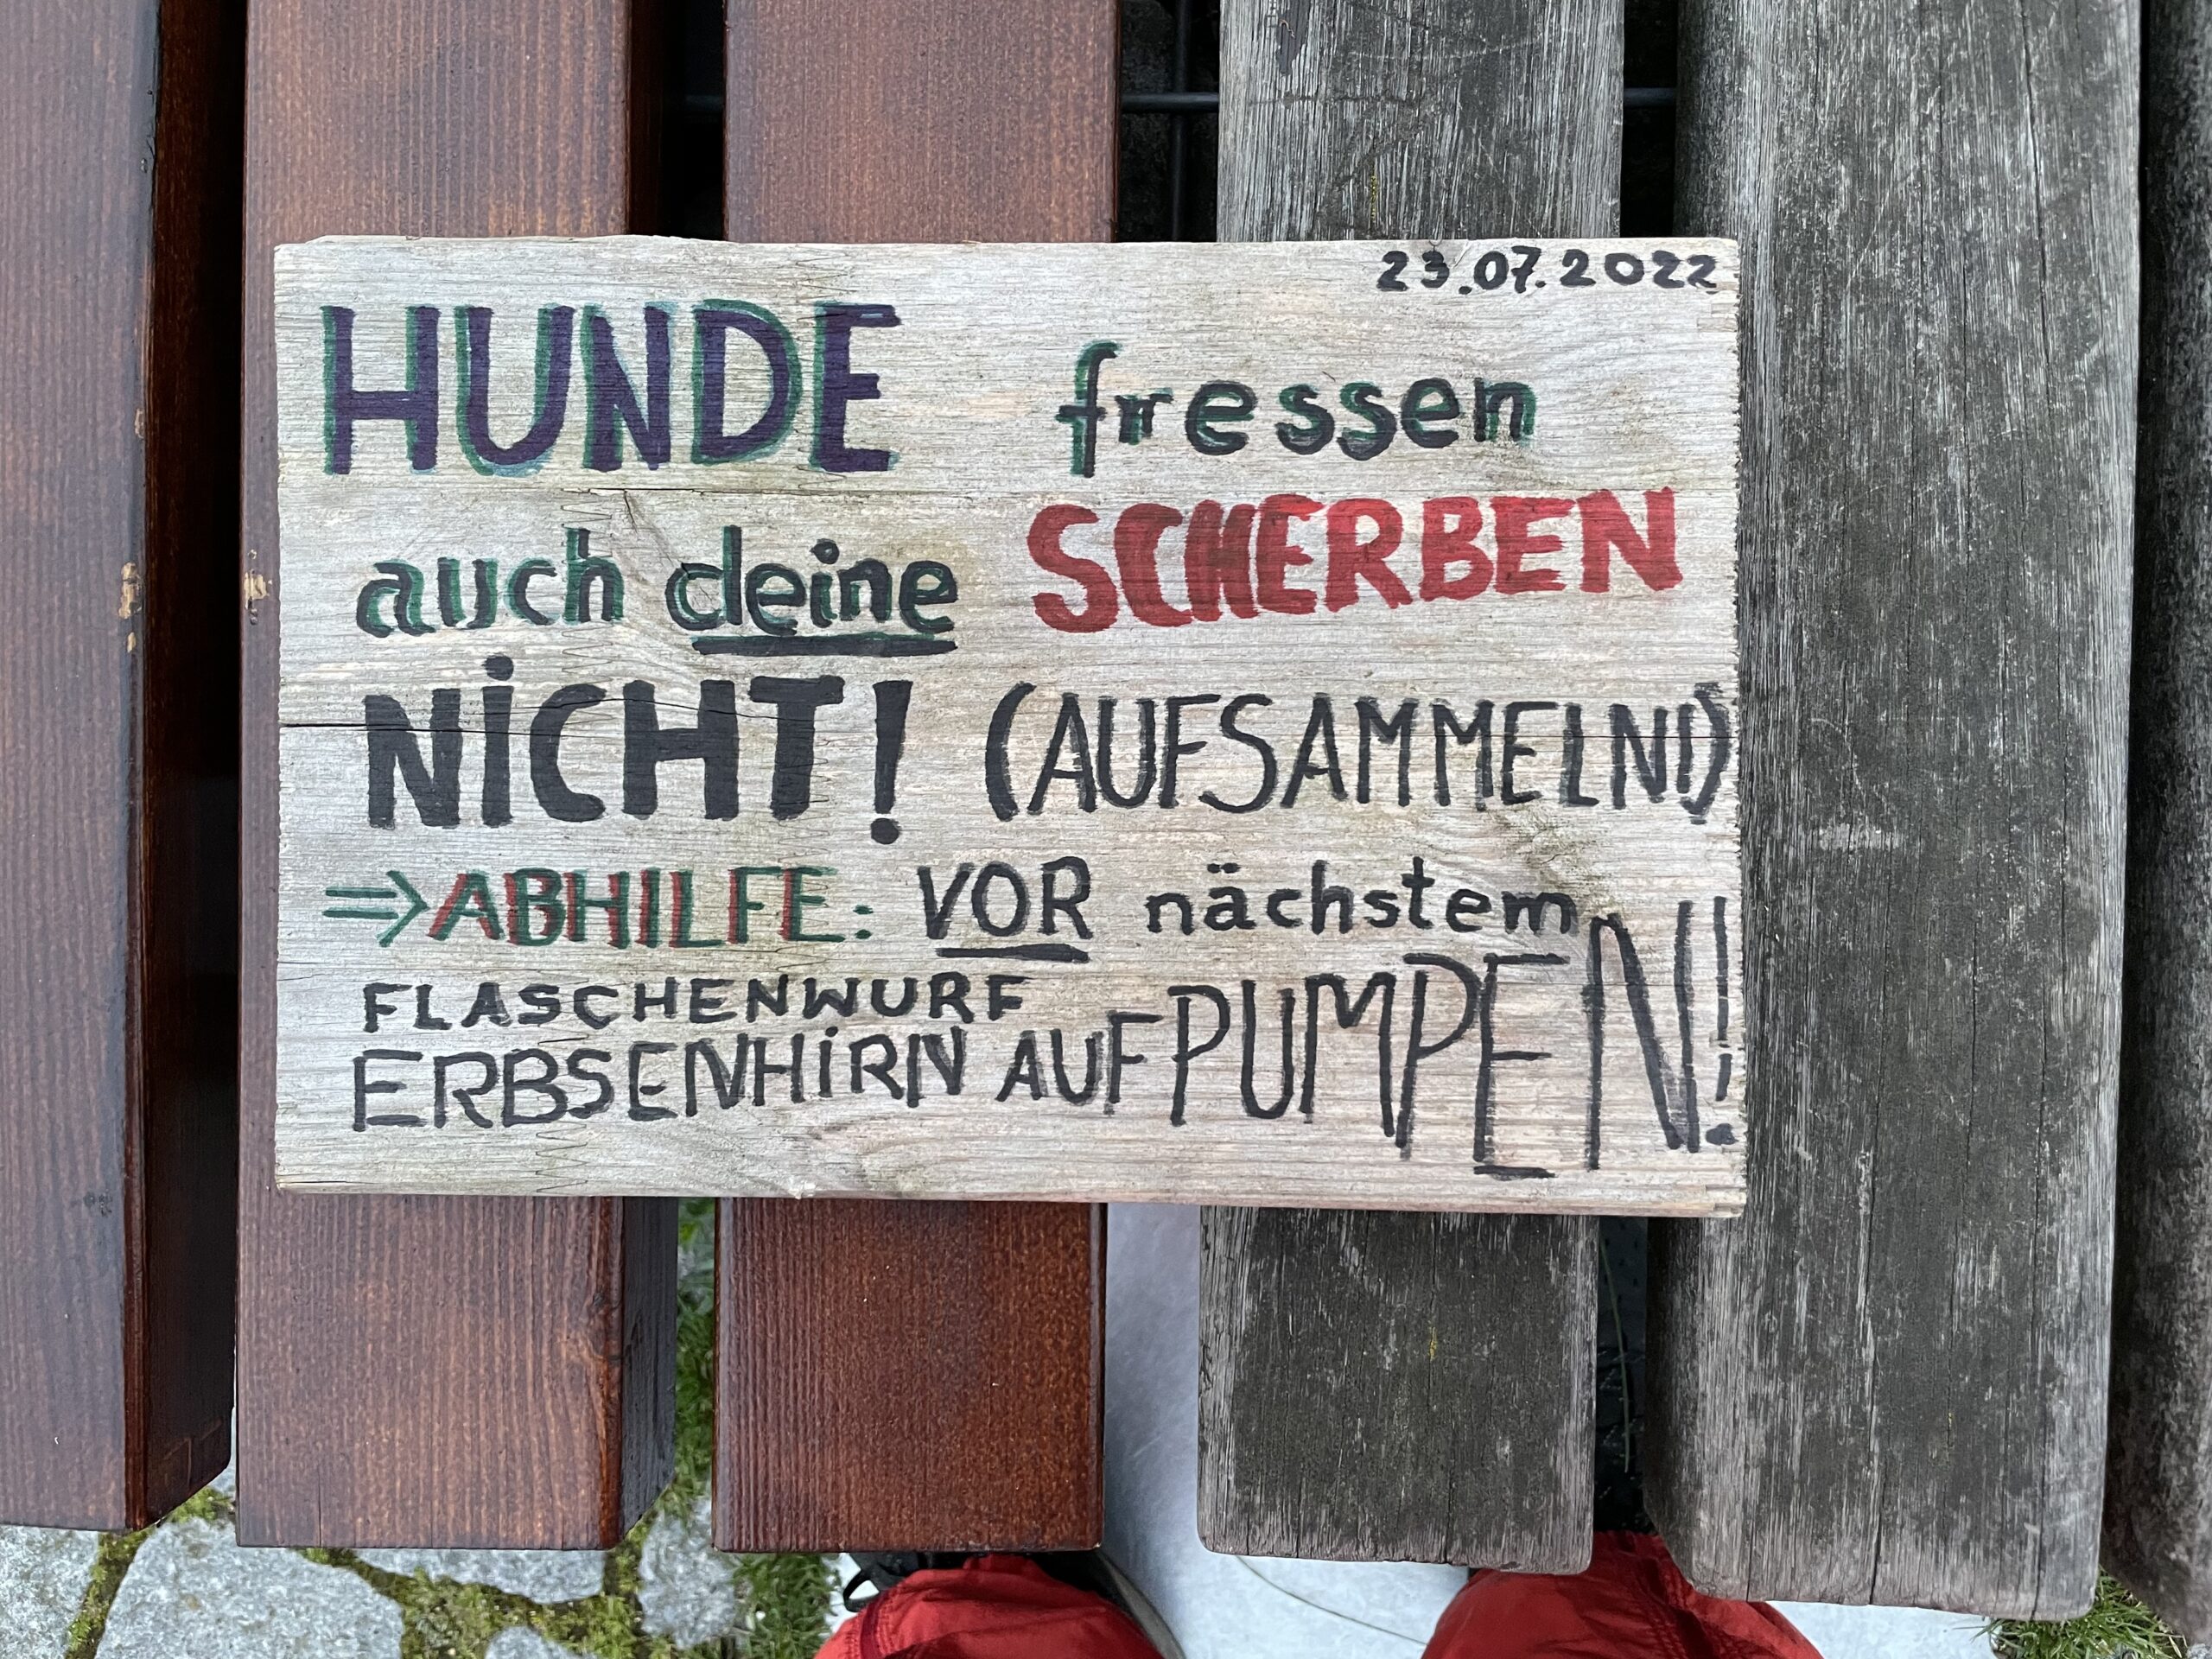 23.07.2022
HUNDE fressen
auch deine SCHERBEN
NiCHT! (AUFSAMMELN!)
⇒ABHILFE: VOR nächstem
FLASCHENWURF
ERBSENHiRN AUFPUMPEN!